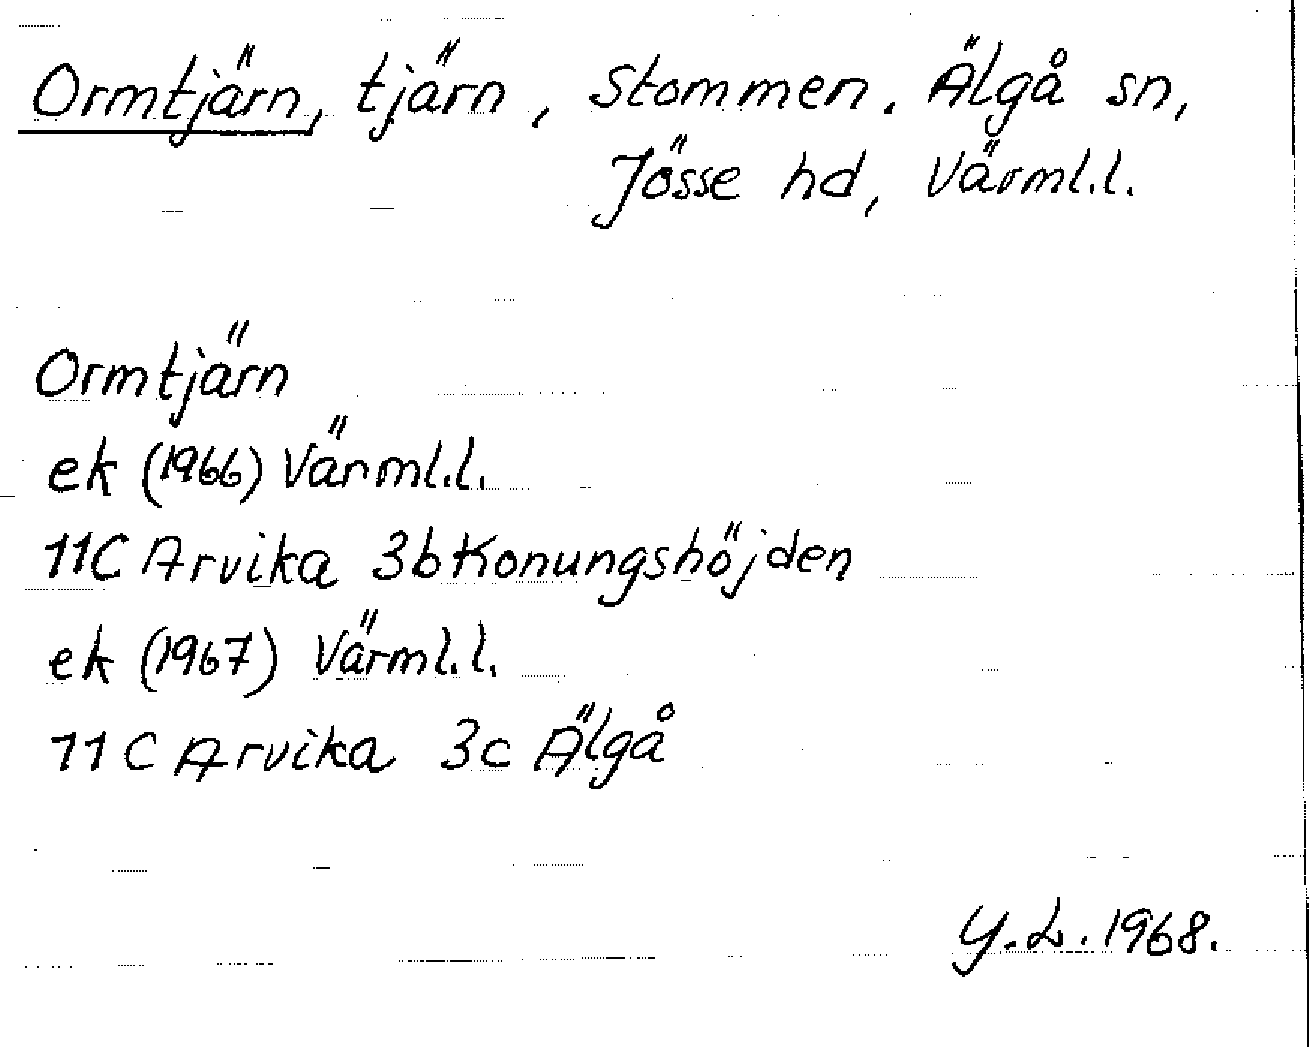 Ormtjärn, tjärn, Stommen. Älgå sn,
Jösse hd, Värml.l.
Ormtjärn
ek (1966) Värml.l.
11C Arvika 3b Konungshöjden
ek (1967) Värml.l.
11C Arvika 3c Älgå
Y.L. 1968.